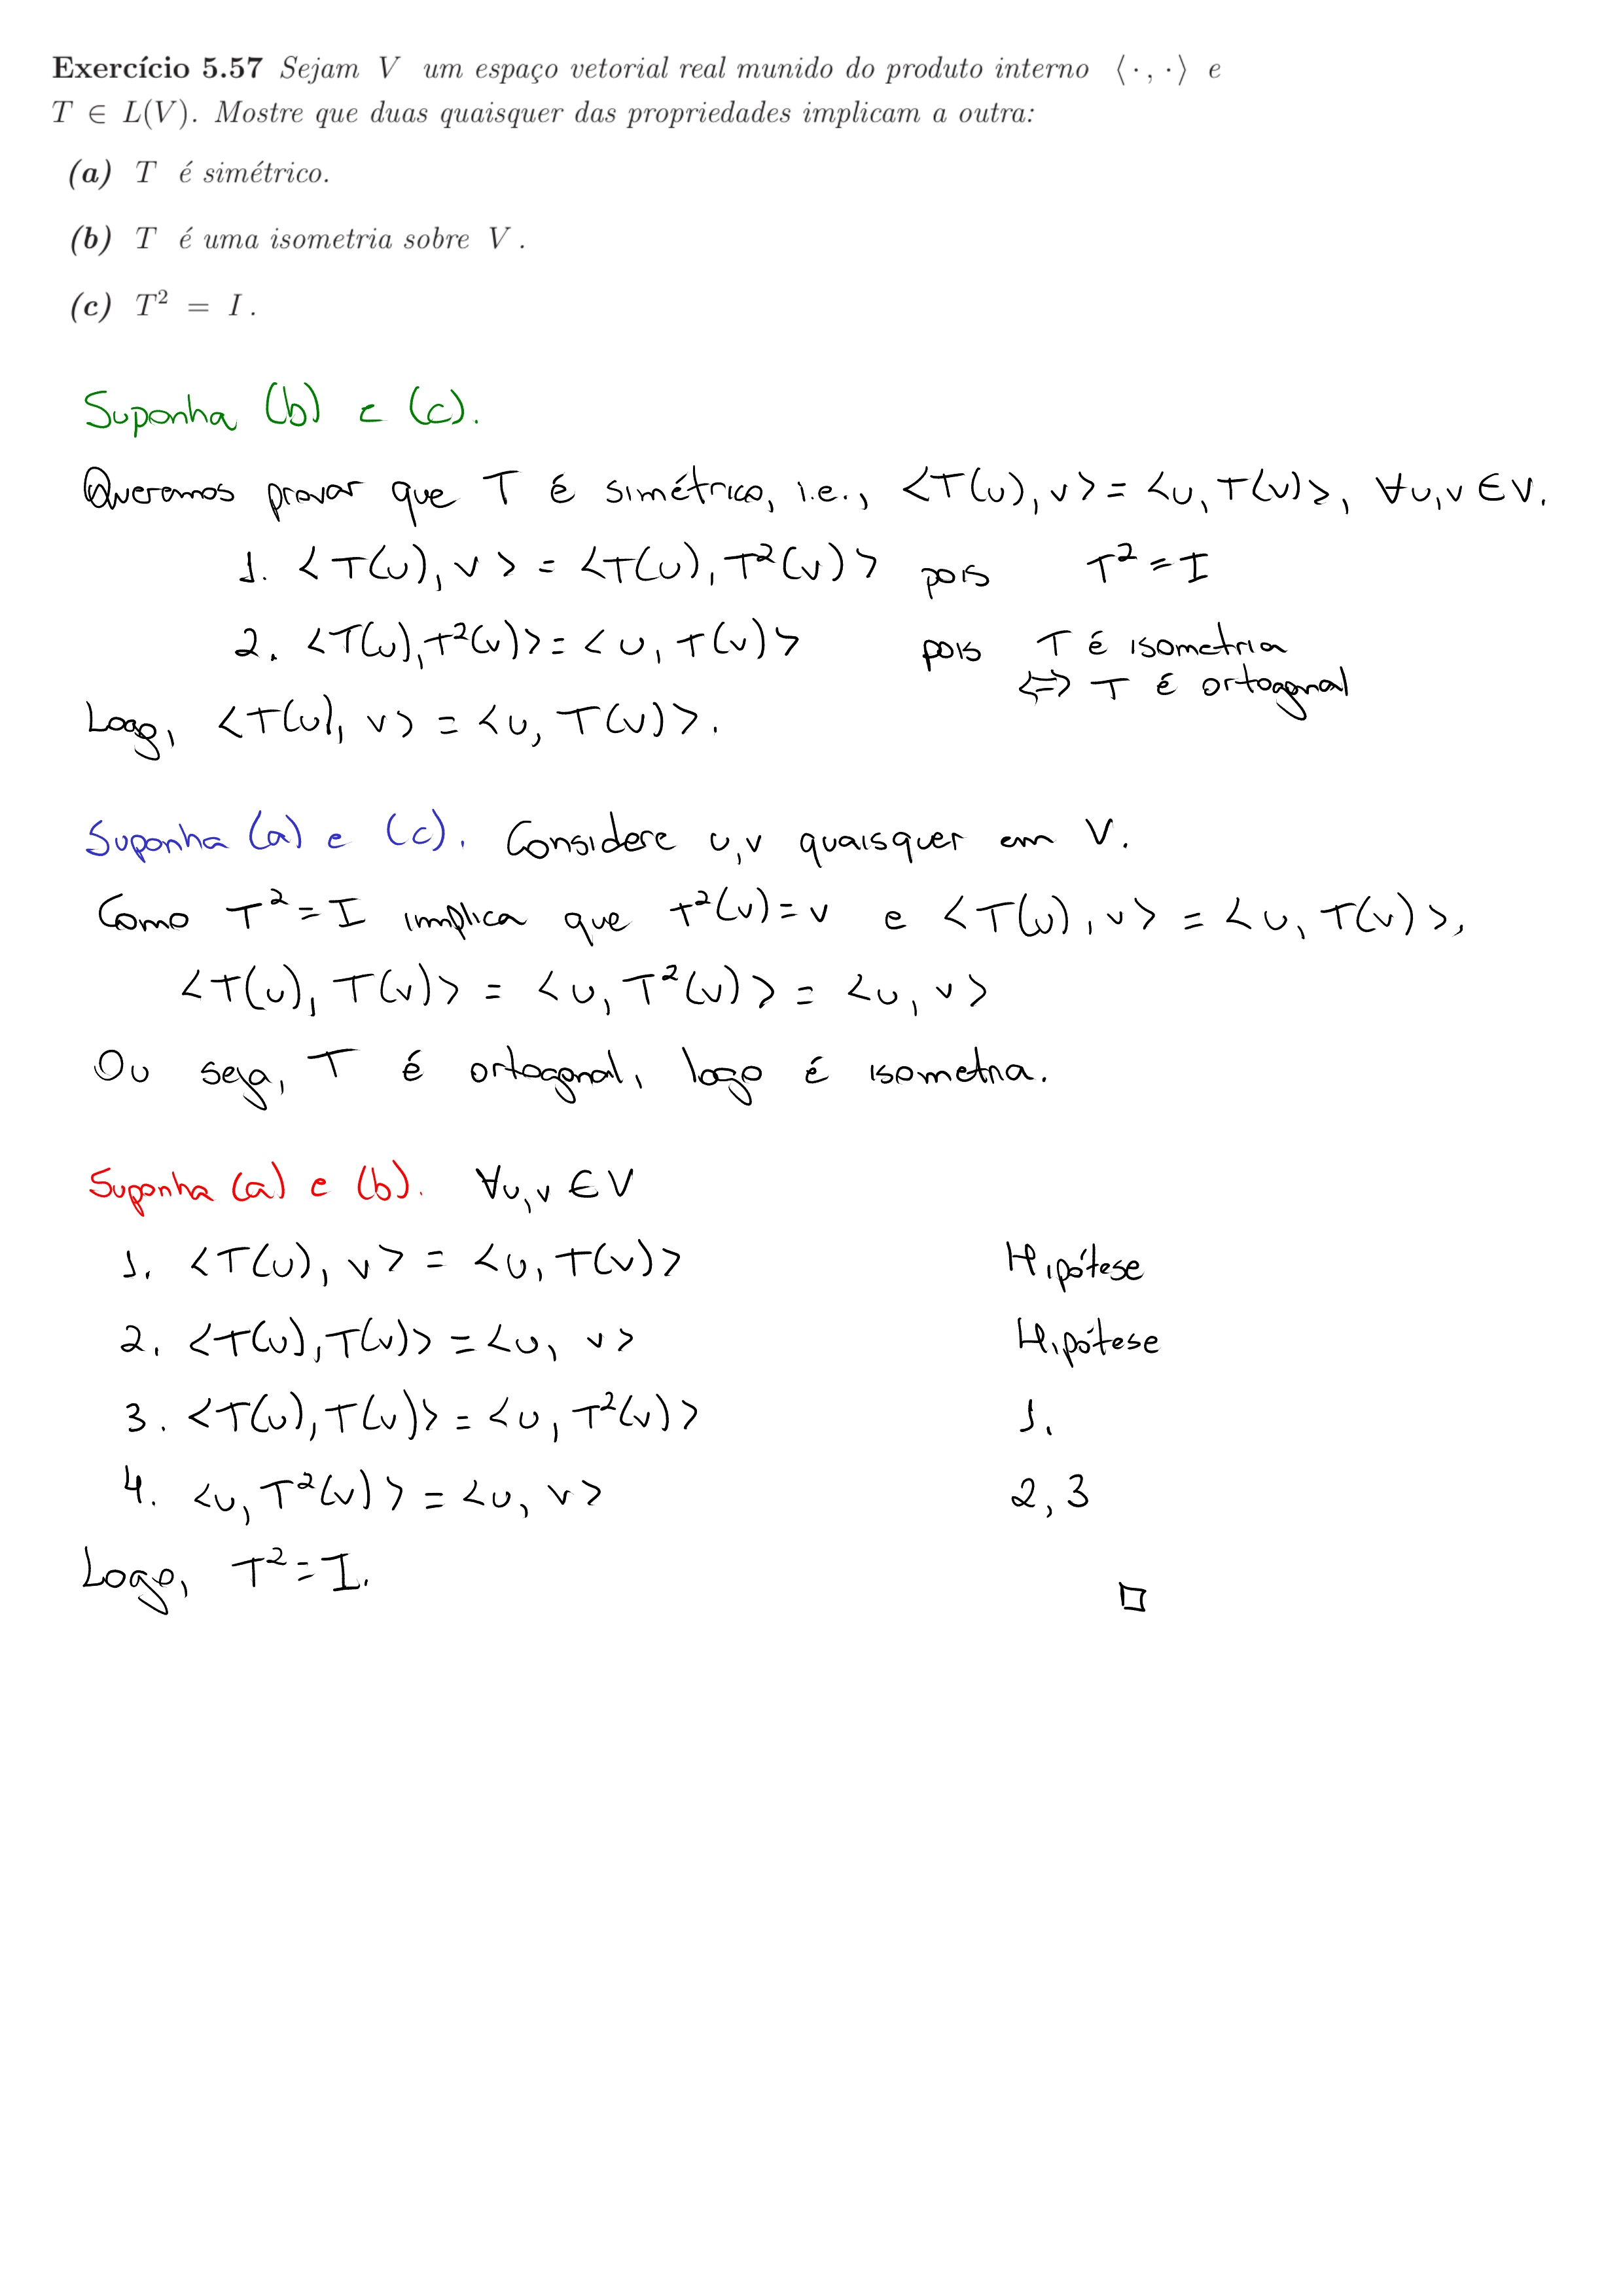 Exercício 5.57 Sejam V um espaço vetorial real munido do produto interno ⟨ · , · ⟩ e
T ∈ L(V). Mostre que duas quaisquer das propriedades implicam a outra:
(a) T é simétrico.
(b) T é uma isometria sobre V .
(c) T² = I .
Suponha (b) e (c).
Queremos provar que T é simétrico, i.e., <T(u), v> = <u, T(v)>, ∀u,v ∈ V.
1. <T(u), v> = <T(u), T²(v)> pois T² = I
2. <T(u), T²(v)> = <u, T(v)> pois T é isometria
<=> T é ortogonal
Logo, <T(u), v> = <u, T(v)>.
Suponha (a) e (c). Considere u,v quaisquer em V.
Como T² = I implica que T²(v) = v e <T(u), v> = <u, T(v)>,
<T(u), T(v)> = <u, T²(v)> = <u, v>
Ou seja, T é ortogonal, logo é isometria.
Suponha (a) e (b). ∀u,v ∈ V
1. <T(u), v> = <u, T(v)> Hipótese
2. <T(u), T(v)> = <u, v> Hipótese
3. <T(u), T(v)> = <u, T²(v)> 1.
4. <u, T²(v)> = <u, v> 2, 3
Logo, T² = I.
□